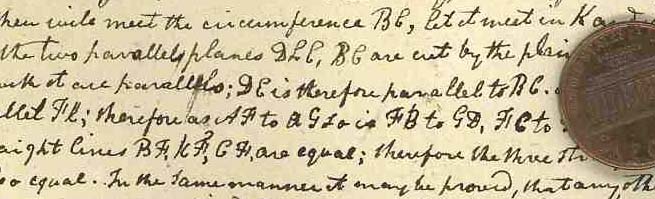 then will meet the circumference BC, let it meet in K and
the two parallels planes DLE, BC are cut by the plain
it are parallels; DE is therefore parallel to BC.
FK; therefore as AF to AG so is FB to GD, FC to
lines BF, KF, CF, are equal; therefore the three
so equal. In the same manner it may be proved, that any oth